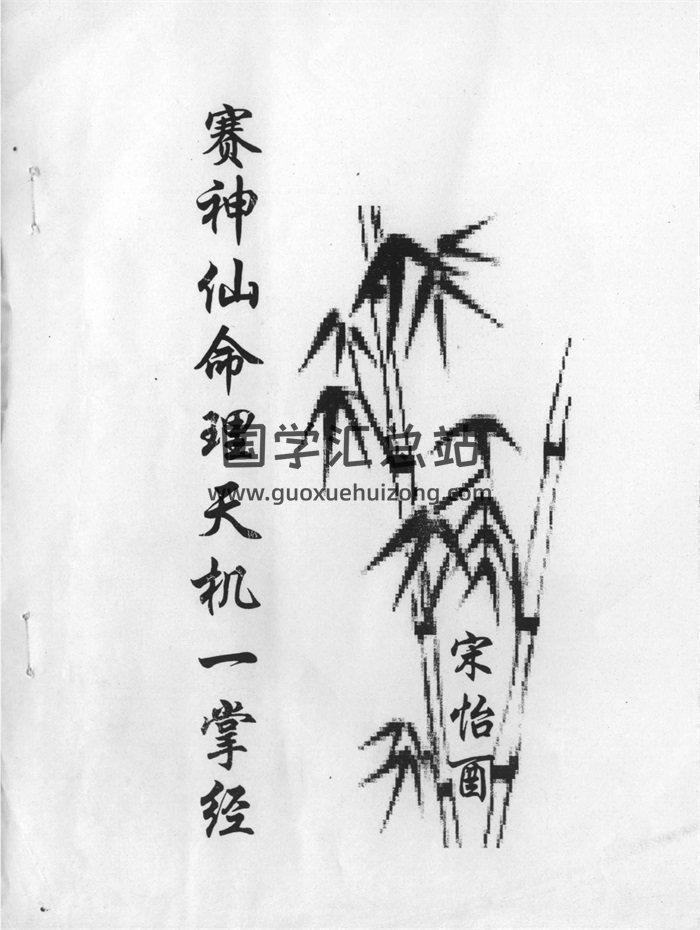 赛神仙命理天机一掌经
国学汇总站
www.guoxuehuizong.com
宋怡酉